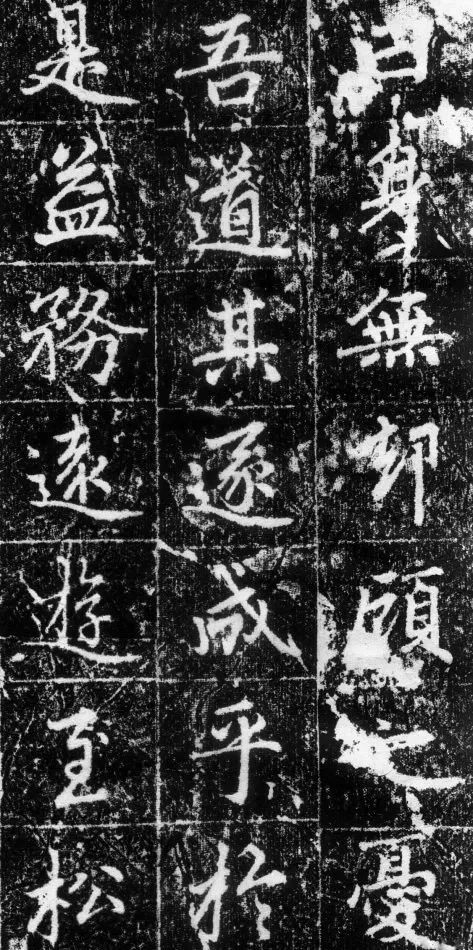 日身無却顧之憂
吾道其遂成乎於
是益務遠遊至松